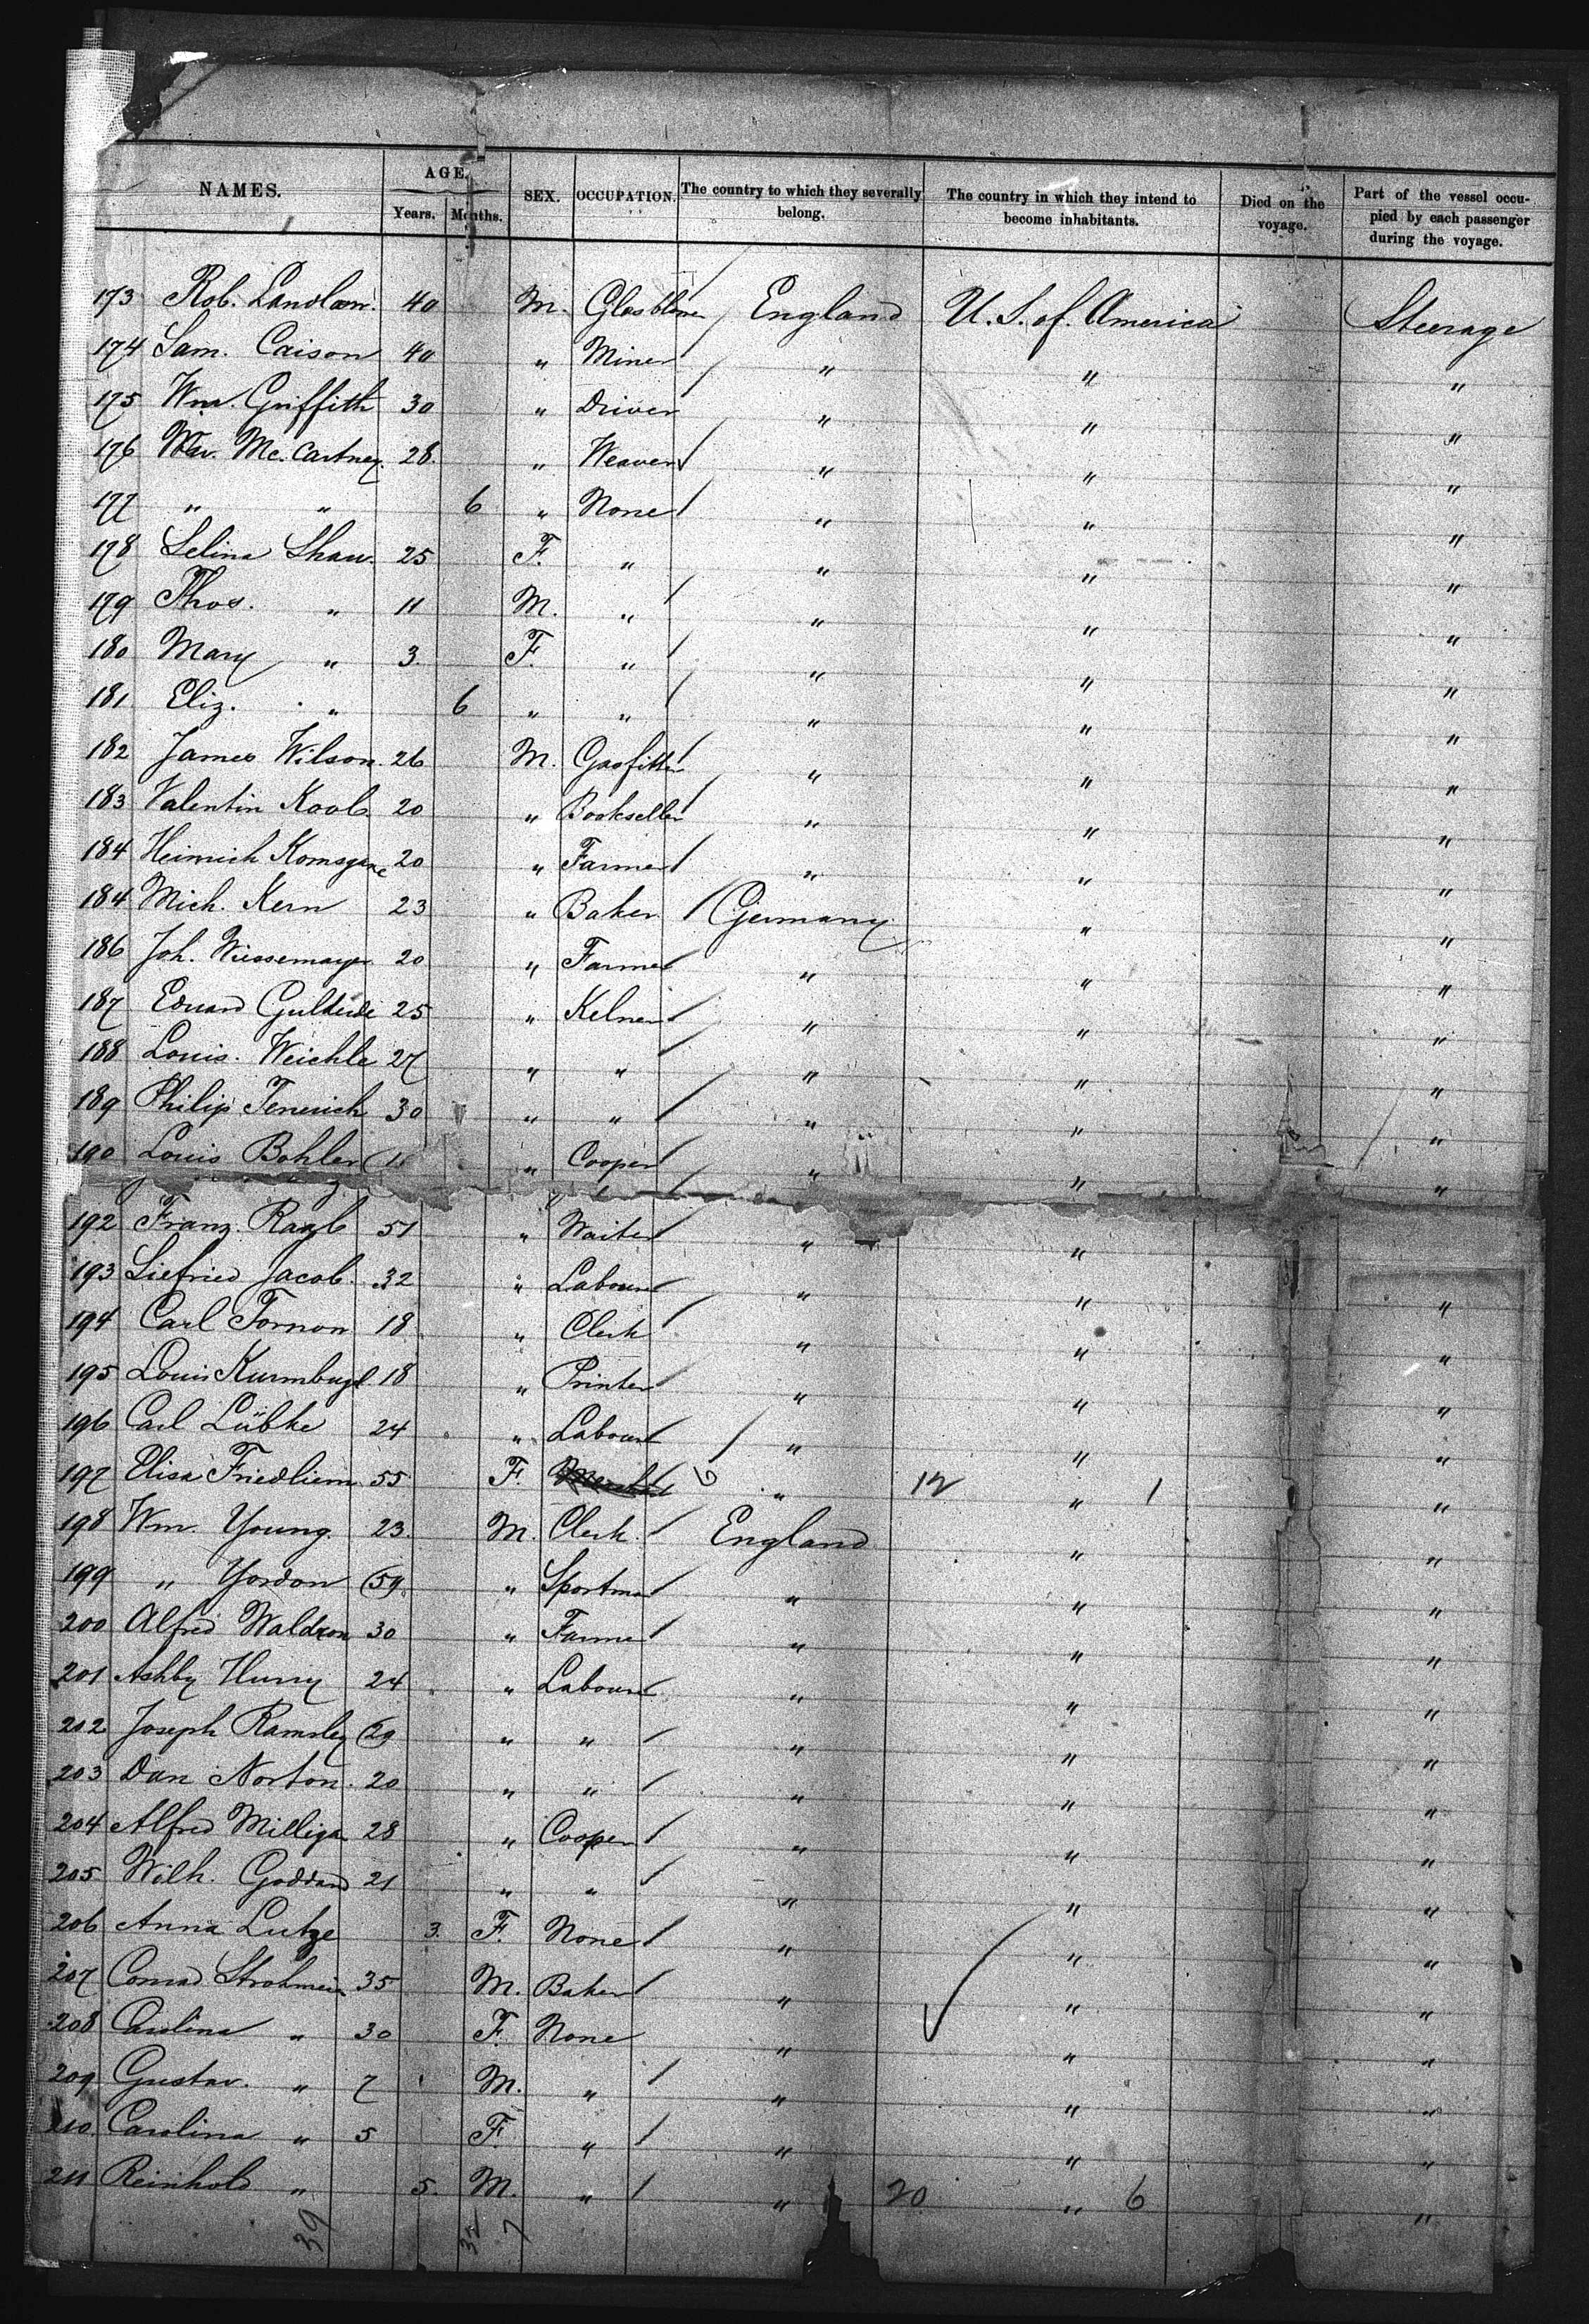 NAMES. AGE. SEX. OCCUPATION. The country to which they severally belong. The country in which they intend to become inhabitants. Died on the voyage. Part of the vessel occupied by each passenger during the voyage.
Years. Months.
173 Rob. 40 M. Glasblower England U. S. of. America Steerage
174 Sam. Caison 40 " Miner " " "
175 Wm. Griffith 30 " Driver " " "
176 Wm. Mc. Cartney. 28. " Weaver " " "
177 " " 6 " None " " "
178 Selina Shaw. 25 F. " " " "
179 Thos. " 11 M. " " " "
180 Mary " 3. F. " " " "
181 Eliz. " 6 " " " " "
182 James Wilson. 26 M. Gasfitter " " "
183 Valentin Koob. 20 " Bookseller " " "
184 Heinrich 20 " Farmer " " "
184 Mich. Kern 23 " Baker Germany " "
186 Joh. Wiessemayer 20 " Farmer " " "
187 Eduard 25 " Kelner " " "
188 Louis. Weichle 27 " " " " "
189 Philip 30 " " " " "
190 Louis Bohler " Cooper " " "
192 Franz. 51 " Waiter " "
193 Siefried Jacob. 32 " Labourer " " "
194 Carl Fornon 18 " Clerk " " "
195 Louis 18 " Printer " " "
196 Carl Lübke 24 " Labourer " " "
197 Elisa 55 F. 6 " 12 " 1 "
198 Wm. Young. 23. M. Clerk. England " "
199 " Yordon 59. " Sportman " " "
200 Alfred Waldron 30 " Farmer " " "
201 Ashby 24 " Labourer " " "
202 Joseph Ramsley 29 " " " " "
203 Dan Norton. 20 " " " " "
204 Alfred Milligan 28 " Cooper " " "
205 Wilh. Goddard 21 " " " " "
206 Anna Lutze 3. F. None " " "
207 Conrad Strohmeier 35 M. Baker " " "
208 Carolina " 30 F. None " " "
209 Gustav. " 7 M. " " " "
210. Carolina " 5 F. " " " "
211 Reinhold " 5. M. " " 20 " 6 "
39 32 7